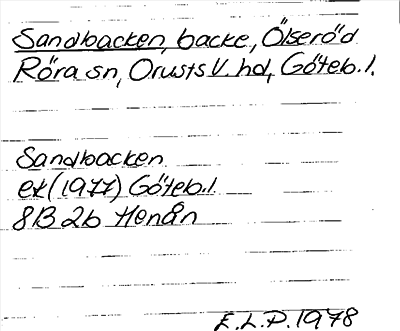 Sandbacken, backe, Ölseröd
Röra sn, Orusts V. hd, Göteb.l.
Sandbacken
ek (1977) Göteb.l.
8B 2b Henån
E.L.P. 1978